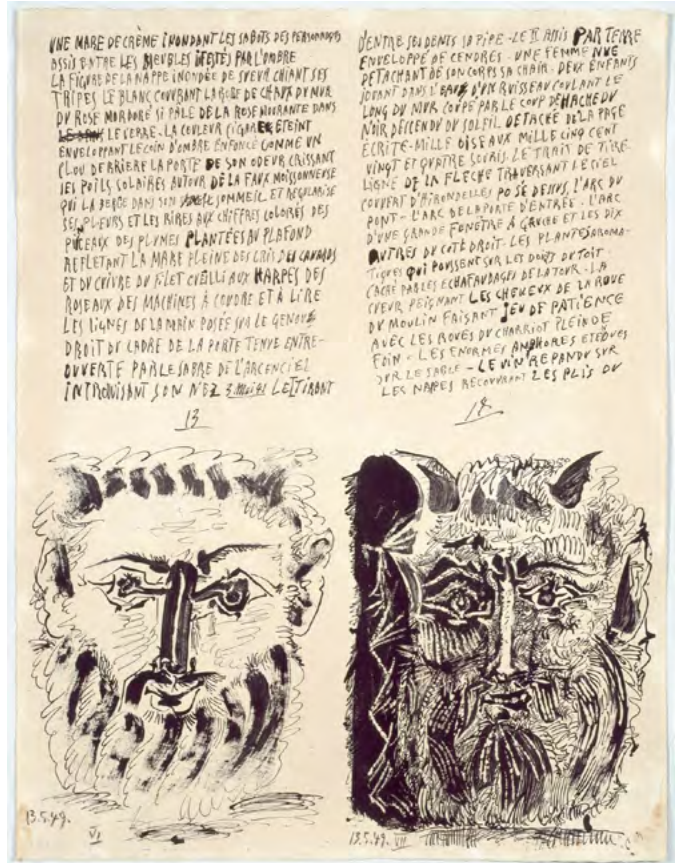 UNE MARE DE CRÈME INONDANT LES SABOTS DES PERSONNAGES
ASSIS ENTRE LES MEUBLES PAR L'OMBRE
LA FIGURE DE LA NAPPE INONDÉE DE SUEUR CHIANT SES
TRIPES LE BLANC COUVRANT LA ROBE DE CHAUX DU MUR
DU ROSE MORDORÉ SI PALE DE LA ROSE MOURANTE DANS
LE VERRE - LA COULEUR ETEINT
ENVELOPPANT LE COIN D'OMBRE ENFONCÉ COMME UN
CLOU DERRIERE LA PORTE DE SON ODEUR CRISSANT
SES POILS SOLAIRES AUTOUR DE LA FAUX MOISSONNEUSE
QUI LA BERCE DANS SON SOMMEIL ET REGULARISE
SES PLEURS ET LES RIRES AUX CHIFFRES COLORÉS DES
PUCEAUX DES PLUMES PLANTÉES AU PLAFOND
REFLETANT LA MARE PLEINE DES CRIS DES CANARDS
ET DU CUIVRE DU FILET CUEILLI AUX HARPES DES
ROSEAUX DES MACHINES À COUDRE ET À LIRE
LES LIGNES DE LA MAIN POSÉE SUR LE GENOUX
DROIT DU CADRE DE LA PORTE TENUE ENTRE-
OUVERTE PAR LE SABRE DE L'ARCENCIEL
INTRODUISANT SON NEZ LE TIRANT
13
D'ENTRE SES DENTS SA PIPE - LE ASSIS PAR TERRE
ENVELOPPÉ DE CENDRES - UNE FEMME NUE
DETACHANT DE SON CORPS SA CHAIR - DEUX ENFANTS
JOUANT DANS L'EAU D'UN RUISSEAU COULANT LE
LONG DU MUR COUPÉ PAR LE COUP DE HACHE DU
NOIR DESCENDU DU SOLEIL DETACÉE DE LA PAGE
ÉCRITE - MILLE OISEAUX MILLE CINQ CENT
VINGT ET QUATRE SOURIS. LE TRAIT DE TIRE-
LIGNE DE LA FLECHE TRAVERSANT LE CIEL
COUVERT D'AIRONDELLES POSÉ DESSUS, L'ARC DU
PONT - L'ARC DE LA PORTE D'ENTRÉE - L'ARC
D'UNE GRANDE FENÊTRE À GAUCHE ET LES DIX
AUTRES DU COTÉ DROIT - LES PLANTES AROMA-
TIQUES QUI POUSSENT SUR LES DOIGTS DU TOIT
CACHÉ PAR LES ECHAFAUDAGES DE LA TOUR - LA
SUEUR PEIGNANT LES CHEVEUX DE LA ROUE
DU MOULIN FAISANT JEU DE PATIENCE
AVEC LES ROUES DU CHARRIOT PLEIN DE
FOIN - LES ENORMES AMPHORES
SUR LE SABLE - LE VIN REPANDU SUR
LES NAPES RECOUVRANT LES PLIS DU
18
13.5.49.
VI
13.5.49. VII